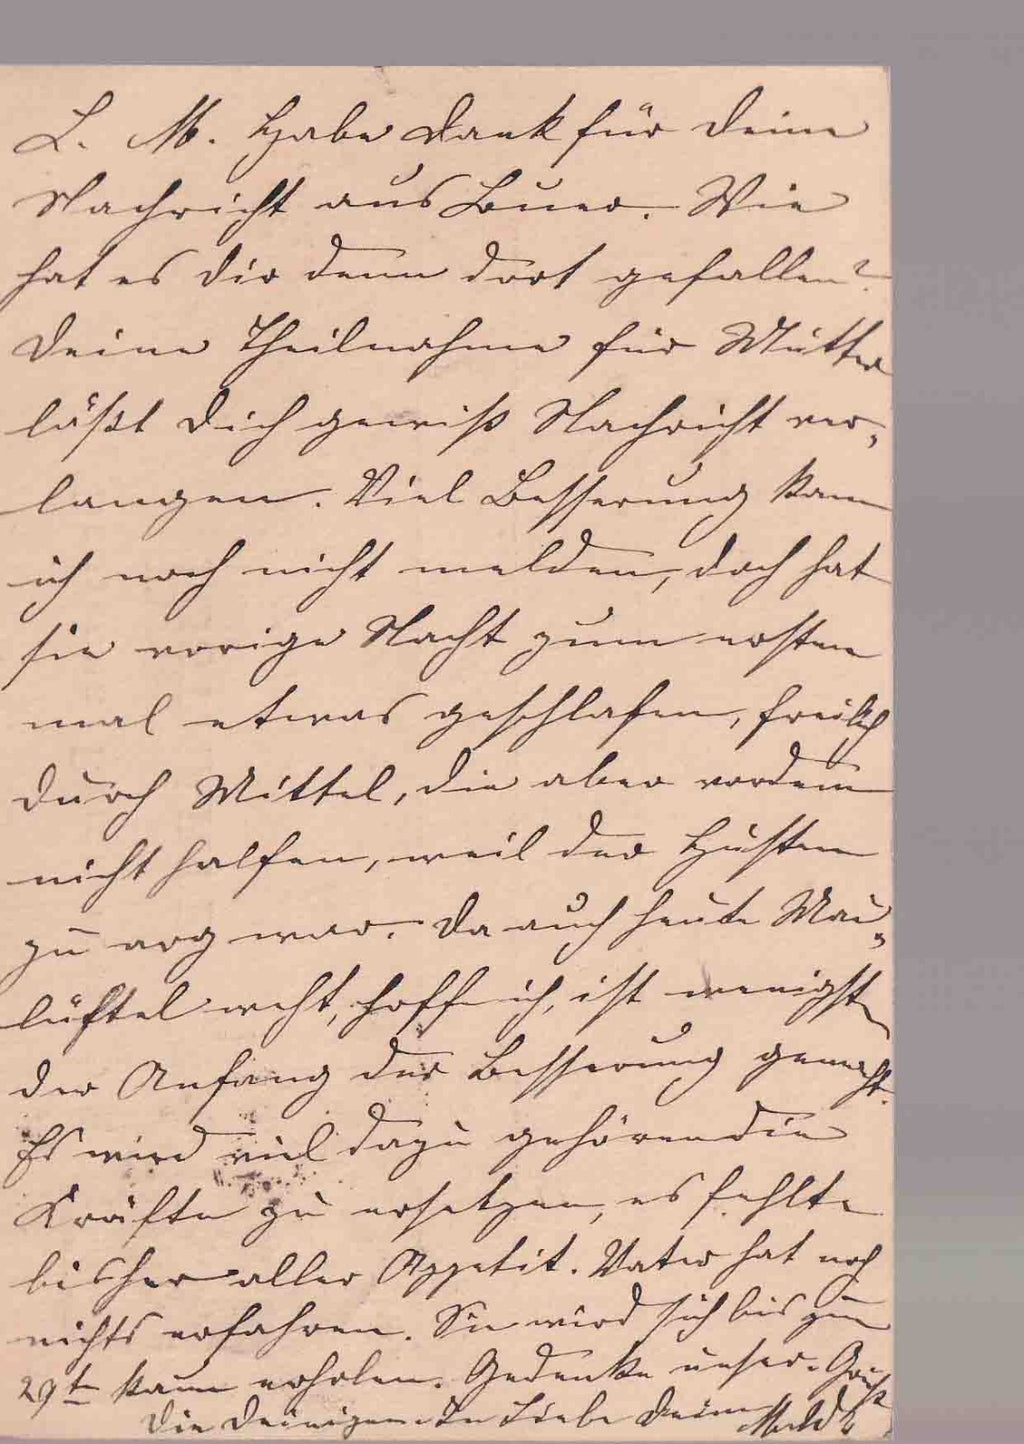 L. M. Habe Dank für Deine
Nachricht aus Buer. Wie
hat es Dir denn dort gefallen?
Deine Theilnahme für Mutter
läßt Dich gewiß Nachricht ver-
langen. Viel Besserung kann
ich noch nicht melden, doch hat
sie vorige Nacht zum ersten
mal etwas geschlafen, freilich
durch Mittel, die aber vordem
nicht halfen, weil der Husten
zu arg war. Da auch heute Mai-
lüftel weht, hoff ich, ist wenigst
der Anfang der Besserung gemacht.
Es wird viel dazu gehören die
Kräfte zu ersetzen, es fehlte
bisher aller Appetit. Vater hat noch
nichts erfahren. Sie wird sich bis zum
29t kaum erholen. Gedenke unser. Grüß
die Deinigen. In Liebe Deine